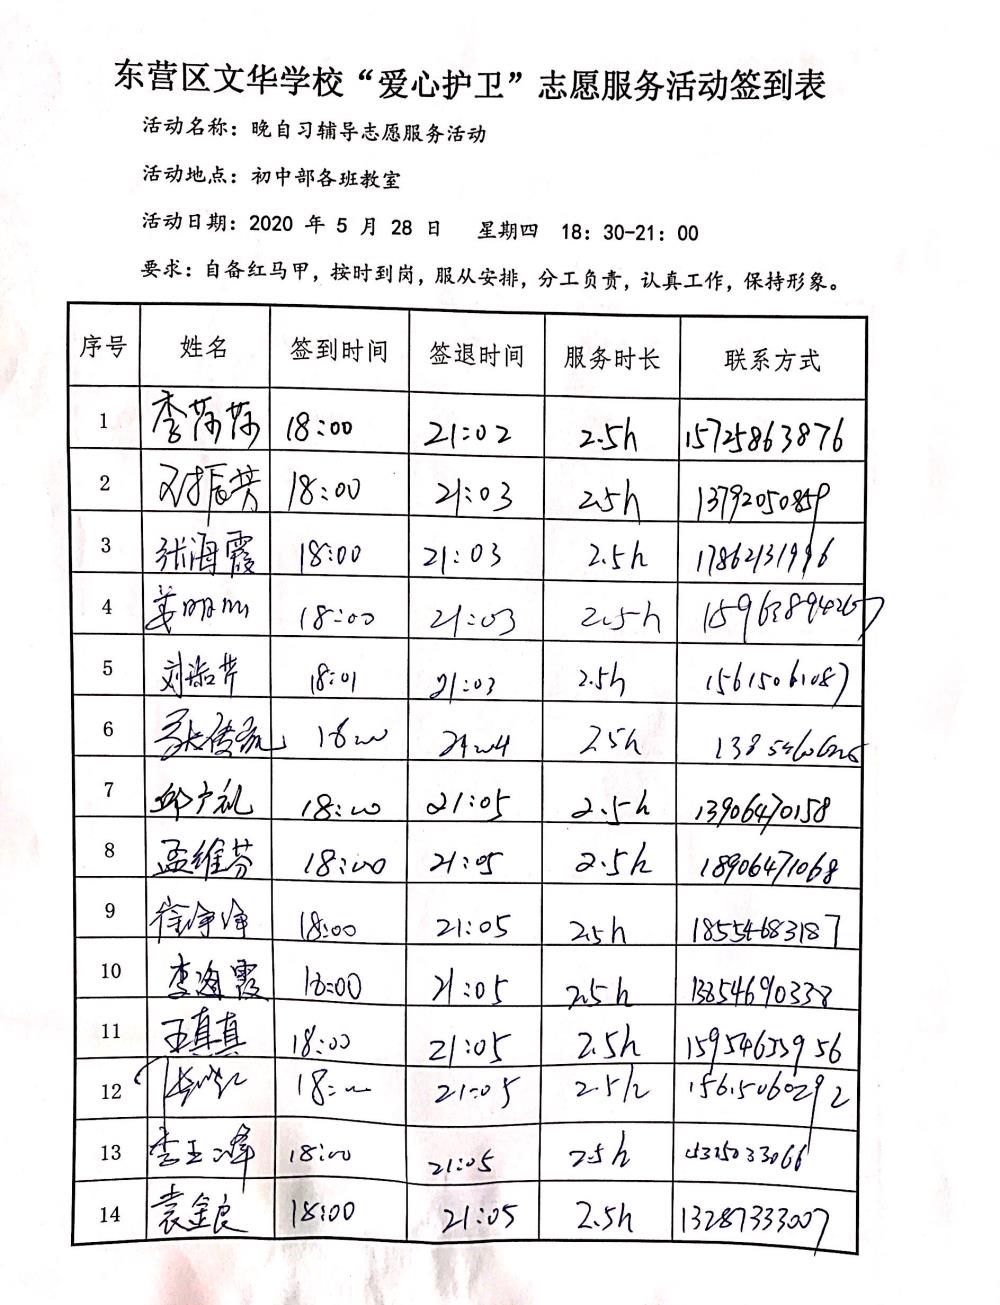 东营区文华学校“爱心护卫”志愿服务活动签到表
活动名称：晚自习辅导志愿服务活动
活动地点：初中部各班教室
活动日期：2020 年 5 月 28 日 星期四 18：30-21：00
要求：自备红马甲，按时到岗，服从安排，分工负责，认真工作，保持形象。
序号 姓名 签到时间 签退时间 服务时长 联系方式
1 李莎莎 18:00 21:02 2.5h 15725863876
2 刘振芳 18:00 21:03 2.5h 13792050859
3 张海霞 18:00 21:03 2.5h 17862131996
4 18:00 21:03 2.5h
5 18:01 21:03 2.5h 15615061087
6 18:00 21:04 2.5h
7 邱广礼 18:00 21:05 2.5h 13906470158
8 孟维芬 18:00 21:05 2.5h 18906471068
9 徐净净 18:00 21:05 2.5h 18554683187
10 李海霞 18:00 21:05 2.5h 13854690338
11 王真真 18:00 21:05 2.5h
12 18:00 21:05 2.5h 15615060292
13 18:00 21:05 2.5h
14 袁金良 18:00 21:05 2.5h 13287333007